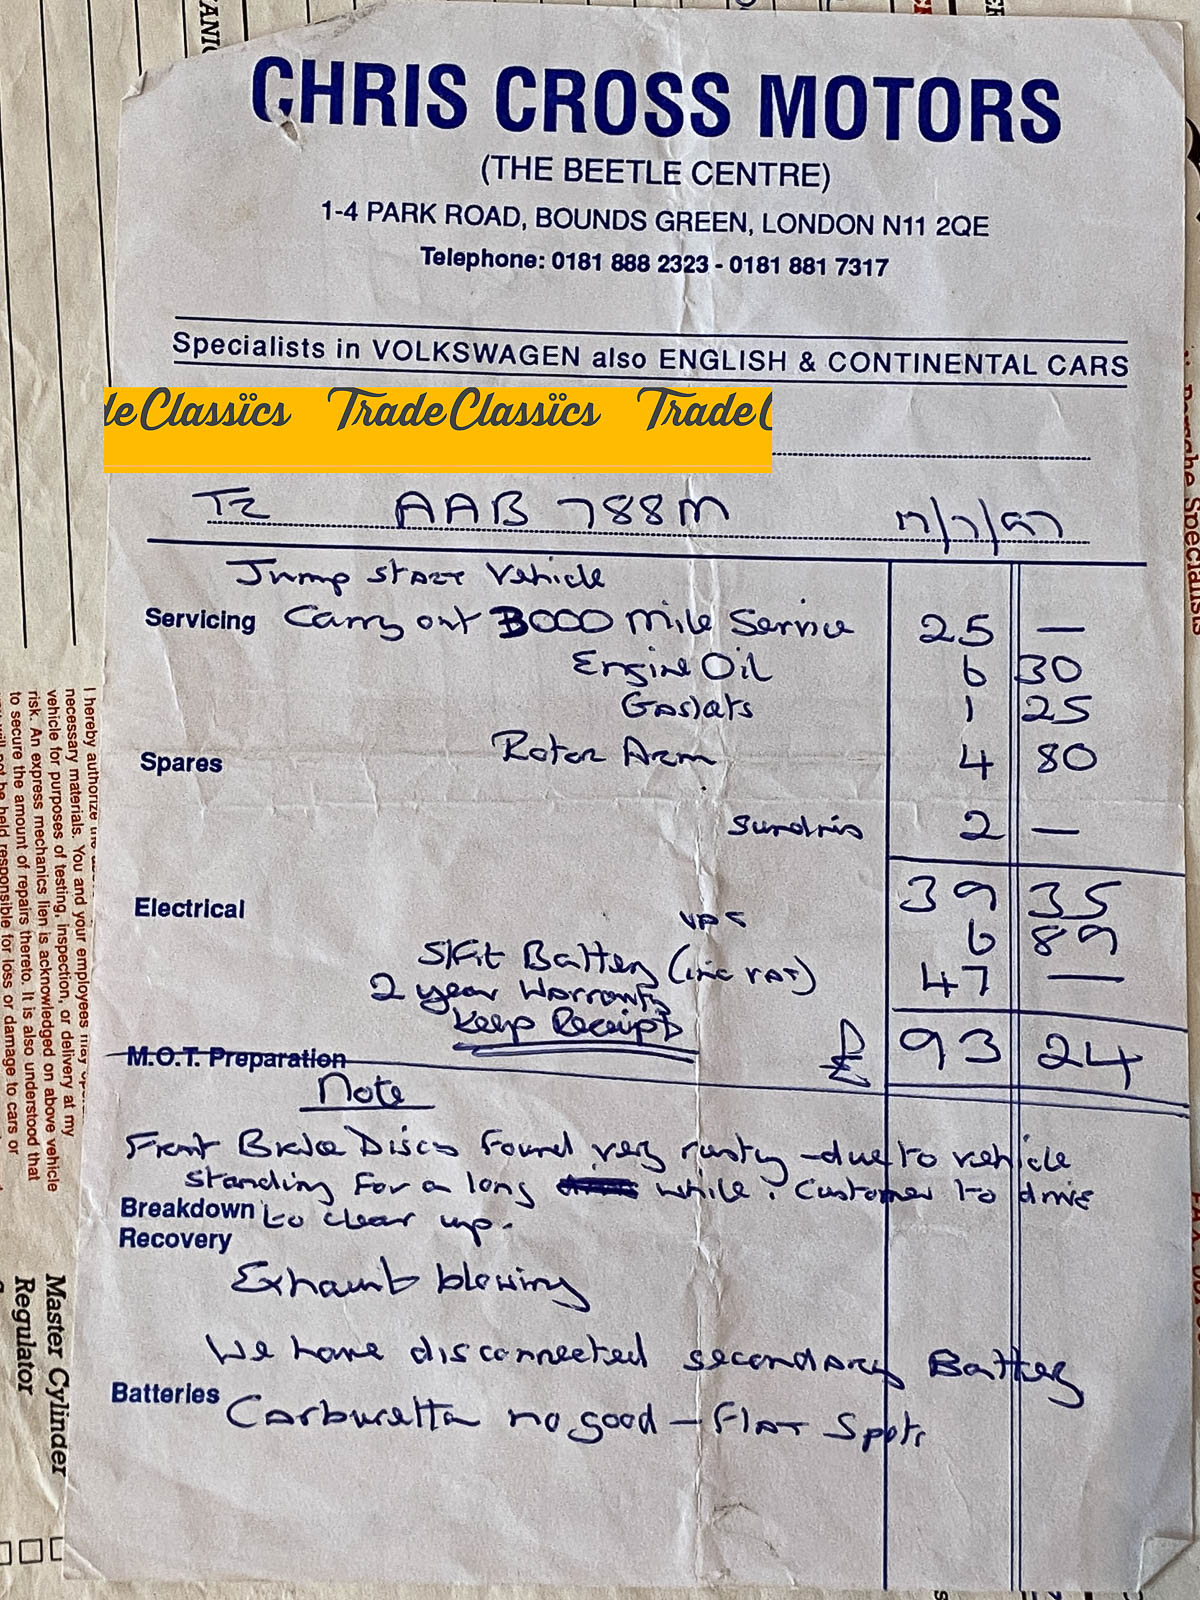 CHRIS CROSS MOTORS
(THE BEETLE CENTRE)
1-4 PARK ROAD, BOUNDS GREEN, LONDON N11 2QE
Telephone: 0181 888 2323 - 0181 881 7317
Specialists in VOLKSWAGEN also ENGLISH & CONTINENTAL CARS
de Classics Trade Classics Trade C
T2 AAB 788M 17/7/97
Jump start Vehicle
Servicing Carry out 3000 mile Service 25 —
Engine Oil 6 30
Gaskets 1 25
Spares Rotor Arm 4 80
Sundries 2 —
39 35
Electrical VAT 6 89
S/Fit Battery (inc VAT) 47 —
2 year Warranty
Keep Receipt
M.O.T. Preparation £ 93 24
Note
Front Brake Discs found very rusty - due to vehicle
standing for a long while. Customer to drive
Breakdown to clear up.
Recovery
Exhaust blowing
We have disconnected secondary Battery
Batteries
Carburetta no good - Flat Spots
I hereby authorize the
necessary materials. You and your employees may
vehicle for purposes of testing, inspection, or delivery at my
risk. An express mechanics lien is acknowledged on above vehicle
to secure the amount of repairs thereto. It is also understood that
you will not be held responsible for loss or damage to cars or
Master Cylinder
Regulator
Porsche Specialists